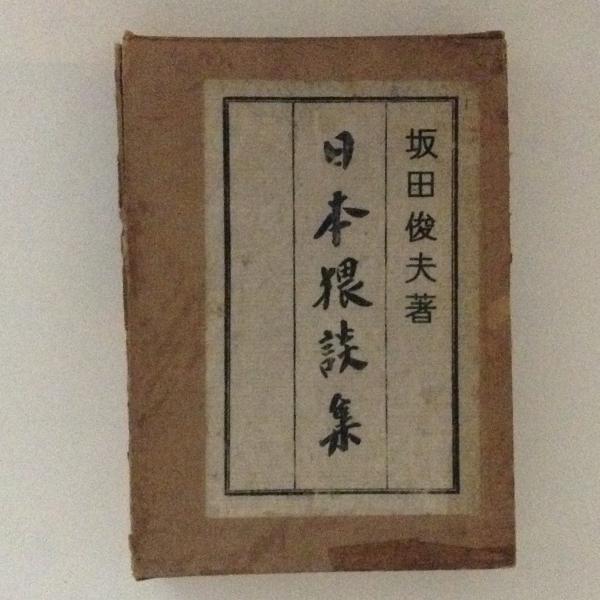 坂田俊夫著
日本猥談集